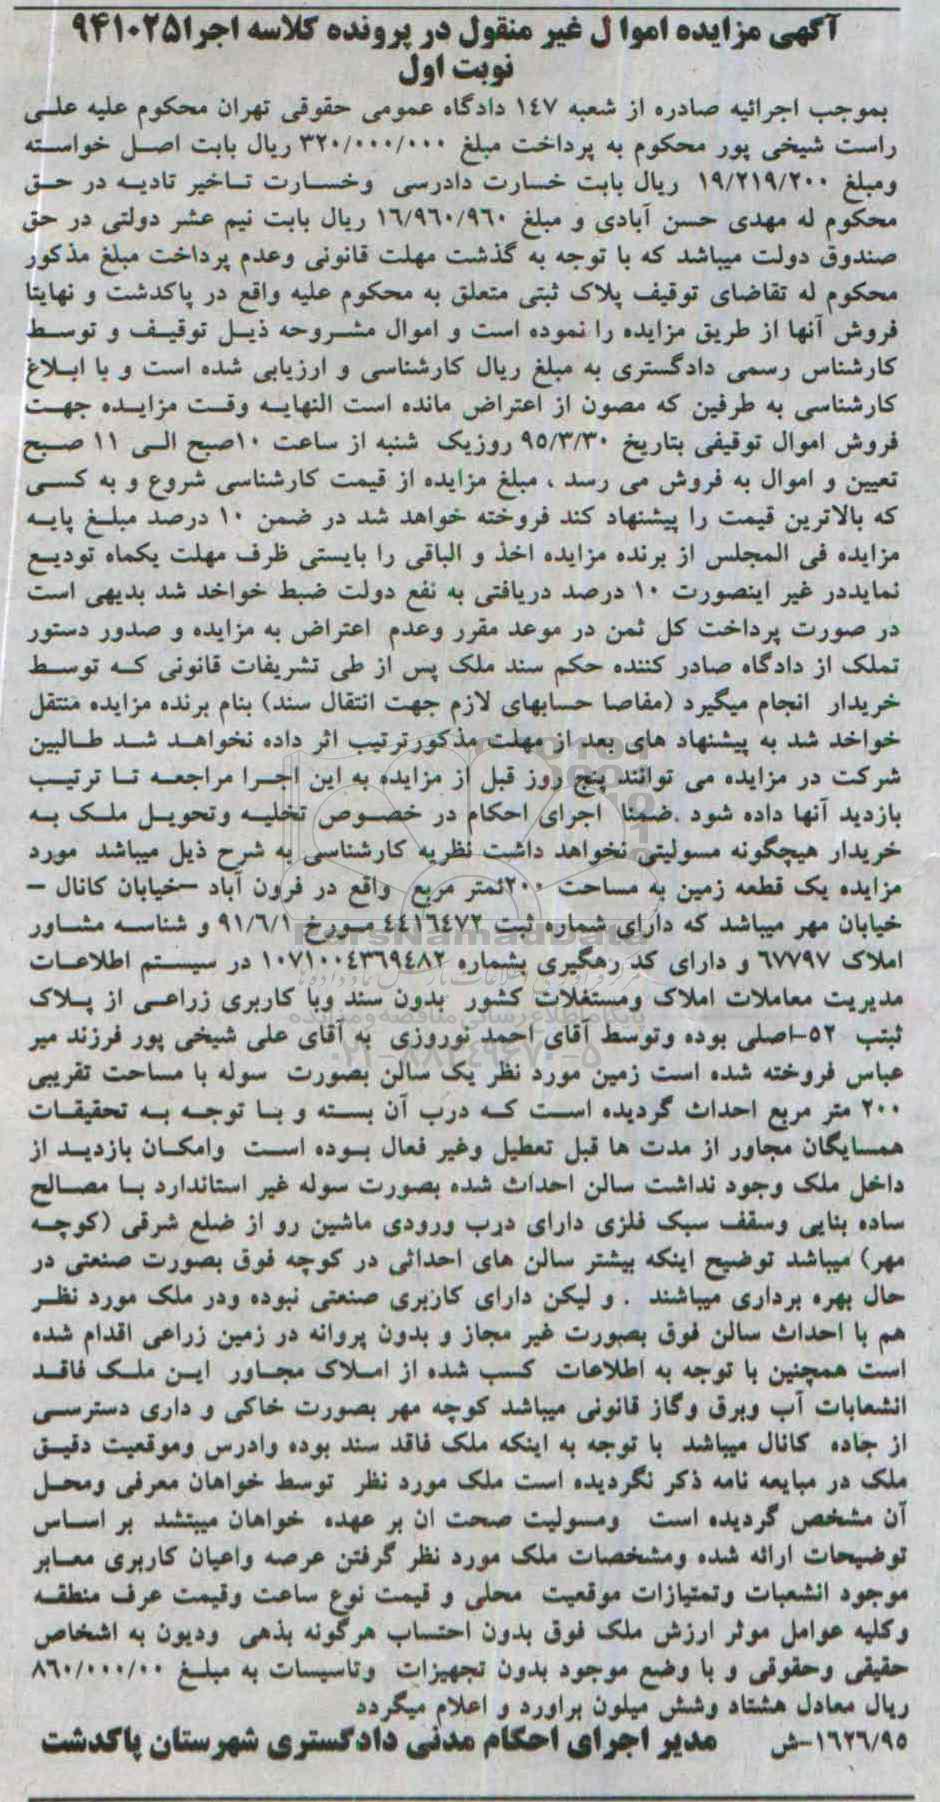 آگهی مزایده اموا ل غیر منقول در پرونده کلاسه اجرا۹۴۱۰۲۵
نوبت اول
بموجب اجرائیه صادره از شعبه ۱۴۷ دادگاه عمومی حقوقی تهران محکوم علیه علی
راست شیخی پور محکوم به پرداخت مبلغ ۳۲۰/۰۰۰/۰۰۰ ریال بابت اصل خواسته
ومبلغ ۱۹/۲۱۹/۲۰۰ ریال بابت خسارت دادرسی وخسارت تاخیر تادیه در حق
محکوم له مهدی حسن آبادی و مبلغ ۱۶/۹۶۰/۹۶۰ ریال بابت نیم عشر دولتی در حق
صندوق دولت میباشد که با توجه به گذشت مهلت قانونی وعدم پرداخت مبلغ مذکور
محکوم له تقاضای توقیف پلاک ثبتی متعلق به محکوم علیه واقع در پاکدشت و نهایتا
فروش آنها از طریق مزایده را نموده است و اموال مشروحه ذیل توقیف و توسط
کارشناس رسمی دادگستری به مبلغ ریال کارشناسی و ارزیابی شده است و با ابلاغ
کارشناسی به طرفین که مصون از اعتراض مانده است النهایه وقت مزایده جهت
فروش اموال توقیفی بتاریخ ۹۵/۳/۳۰ روزیک شنبه از ساعت ۱۰صبح الی ۱۱ صبح
تعیین و اموال به فروش می رسد ، مبلغ مزایده از قیمت کارشناسی شروع و به کسی
که بالاترین قیمت را پیشنهاد کند فروخته خواهد شد در ضمن ۱۰ درصد مبلغ پایه
مزایده فی المجلس از برنده مزایده اخذ و الباقی را بایستی ظرف مهلت یکماه تودیع
نمایددر غیر اینصورت ۱۰ درصد دریافتی به نفع دولت ضبط خواخد شد بدیهی است
در صورت پرداخت کل ثمن در موعد مقرر وعدم اعتراض به مزایده و صدور دستور
تملک از دادگاه صادر کننده حکم سند ملک پس از طی تشریفات قانونی که توسط
خریدار انجام میگیرد (مفاصا حسابهای لازم جهت انتقال سند) بنام برنده مزایده منتقل
خواخد شد به پیشنهاد های بعد از مهلت مذکورترتیب اثر داده نخواهد شد طالبین
شرکت در مزایده می توانند پنج روز قبل از مزایده به این اجرا مراجعه تا ترتیب
بازدید آنها داده شود .ضمنا اجرای احکام در خصوص تخلیه وتحویل ملک به
خریدار هیچگونه مسولیتی نخواهد داشت نظریه کارشناسی به شرح ذیل میباشد مورد
مزایده یک قطعه زمین به مساحت ۲۰۰ئمتر مربع واقع در فرون آباد –خیابان کانال –
خیابان مهر میباشد که دارای شماره ثبت ۴۴۱۶۴۷۲ مورخ ۹۱/۶/۱ و شناسه مشاور
املاک ۶۷۷۹۷ و دارای کد رهگیری بشماره ۱۰۷۱۰۰۴۳۶۹۴۸۲ در سیستم اطلاعات
مدیریت معاملات املاک ومستغلات کشور بدون سند وبا کاربری زراعی از پلاک
ثبتب ۵۲-اصلی بوده وتوسط آقای احمد نوروزی به آقای علی شیخی پور فرزند میر
عباس فروخته شده است زمین مورد نظر یک سالن بصورت سوله با مساحت تقریبی
۲۰۰ متر مربع احداث گردیده است که درب آن بسته و با توجه به تحقیقات
همسایگان مجاور از مدت ها قبل تعطیل وغیر فعال بوده است وامکان بازدید از
داخل ملک وجود نداشت سالن احداث شده بصورت سوله غیر استاندارد با مصالح
ساده بنایی وسقف سبک فلزی دارای درب ورودی ماشین رو از ضلع شرقی (کوچه
مهر) میباشد توضیح اینکه بیشتر سالن های احداثی در کوچه فوق بصورت صنعتی در
حال بهره برداری میباشند . و لیکن دارای کاربری صنعتی نبوده ودر ملک مورد نظر
هم با احداث سالن فوق بصورت غیر مجاز و بدون پروانه در زمین زراعی اقدام شده
است همچنین با توجه به اطلاعات کسب شده از املاک مجاور این ملک فاقد
انشعابات آب وبرق وگاز قانونی میباشد کوچه مهر بصورت خاکی و داری دسترسی
از جاده کانال میباشد با توجه به اینکه ملک فاقد سند بوده وادرس وموقعیت دقیق
ملک در مبایعه نامه ذکر نگردیده است ملک مورد نظر توسط خواهان معرفی ومحل
آن مشخص گردیده است ومسولیت صحت ان بر عهده خواهان میبتشد بر اساس
توضیحات ارائه شده ومشخصات ملک مورد نظر گرفتن عرصه واعیان کاربری معابر
موجود انشعبات وتمتیازات موقعیت محلی و قیمت نوع ساعت وقیمت عرف منطقه
وکلیه عوامل موثر ارزش ملک فوق بدون احتساب هرگونه بذهی ودیون به اشخاص
حقیقی وحقوقی و با وضع موجود بدون تجهیزات وتاسیسات به مبلغ ۸۶۰/۰۰۰/۰۰
ریال معادل هشتاد وشش میلون براورد و اعلام میگردد
۱۶۲۶/۹۵-ش مدیر اجرای احکام مدنی دادگستری شهرستان پاکدشت
ParsNamadData
پایگاه اطلاع رسانی مناقصه و مزایده
۰۲۱-۸۸۳۴۹۶۷۰-۵